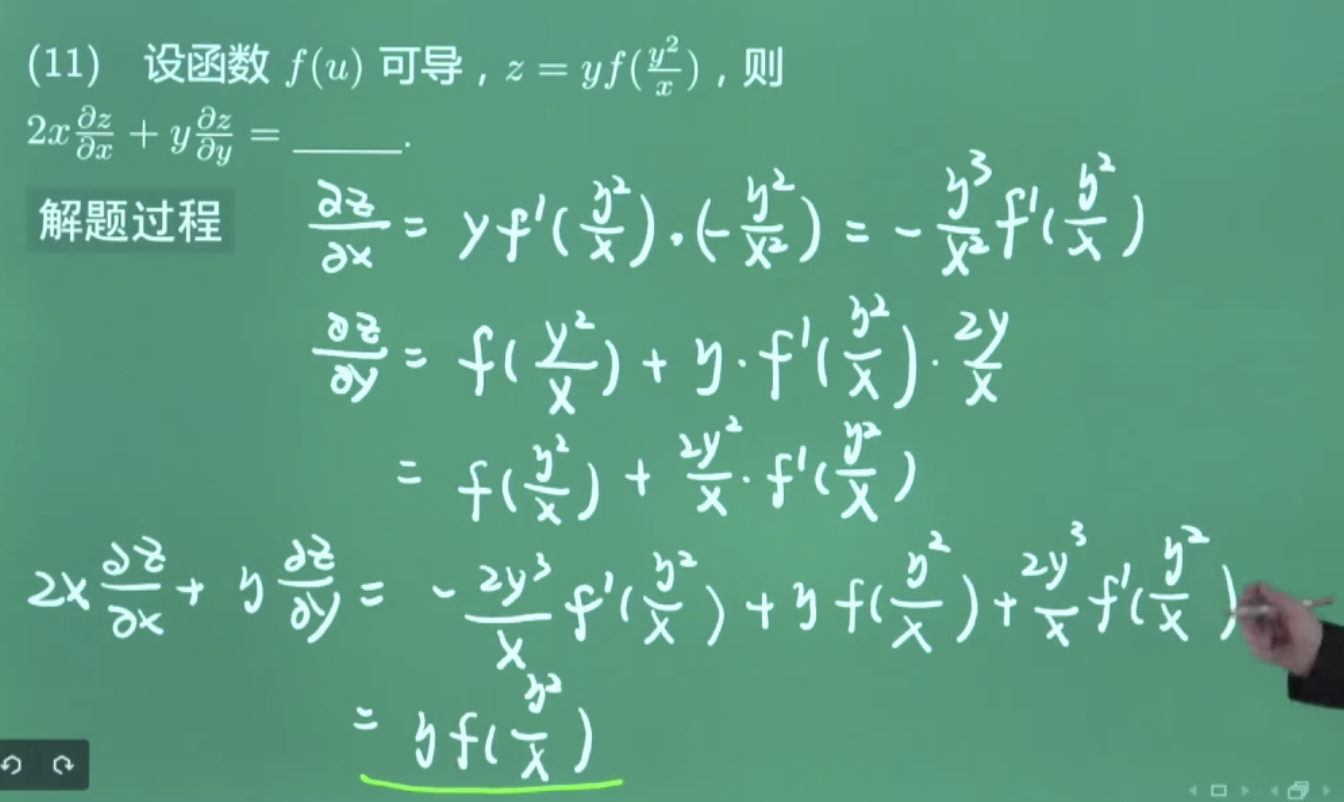 (11) 设函数 f(u) 可导，z = yf(\frac{y^2}{x})，则
2x\frac{∂z}{∂x} + y\frac{∂z}{∂y} = ______.
解题过程
\frac{∂z}{∂x} = yf'(\frac{y^2}{x})·(-\frac{y^2}{x^2}) = -\frac{y^3}{x^2}f'(\frac{y^2}{x})
\frac{∂z}{∂y} = f(\frac{y^2}{x}) + y·f'(\frac{y^2}{x})·\frac{2y}{x}
= f(\frac{y^2}{x}) + \frac{2y^2}{x}·f'(\frac{y^2}{x})
2x\frac{∂z}{∂x} + y\frac{∂z}{∂y} = -\frac{2y^3}{x}f'(\frac{y^2}{x}) + yf(\frac{y^2}{x}) + \frac{2y^3}{x}f'(\frac{y^2}{x})
= yf(\frac{y^2}{x})